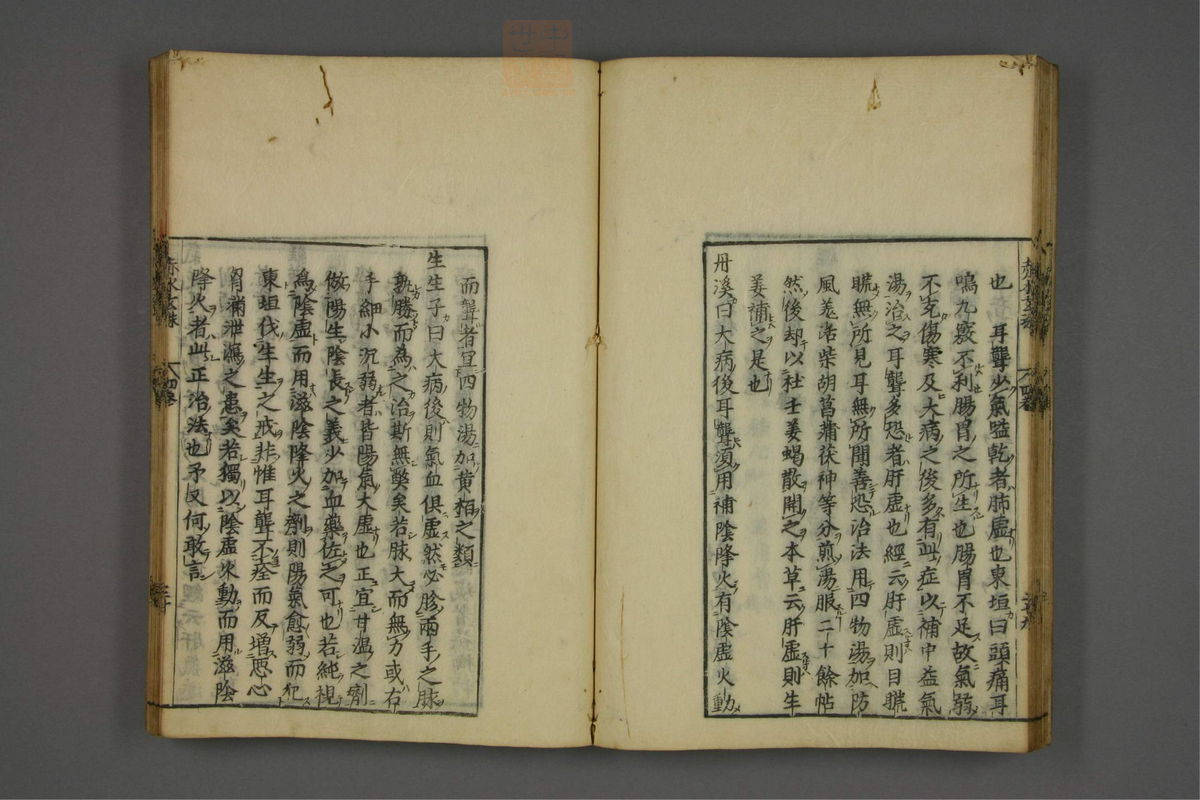 也　耳聾少氣嗌乾者肺虛也東垣曰頭痛耳
鳴九竅不利腸胃之所生也腸胃不足故氣弱
不克傷寒及大病之後多有此症以補中益氣
湯治之耳聾多恐者肝虛也經云肝虛則目䀮
䀮無所見耳無所聞善恐治法用四物湯加防
風羌活柴胡菖蒲茯神等分煎湯服二十餘帖
然後却以杜壬姜蝎散開之本草云肝虛則生
姜補之是也
丹溪曰大病後耳聾須用補陰降火有陰虛火動
而聾者宜四物湯加黄柏之類
生生子曰大病後則氣血俱虛然必胗兩手之脉
孰勝而為之治斯無弊矣若脉大而無力或右
手細小沉弱者皆陽氣大虛也正宜甘温之劑
倣陽生陰長之義少加血藥佐之可也若純視
為陰虛而用滋陰降火之劑則陽氣愈弱而犯
東垣伐生生之戒非惟耳聾不痊而反增惡心
胷滿泄瀉之患矣若獨以陰虛火動而用滋陰
降火者此正治法也予又何敢言
赤水玄珠